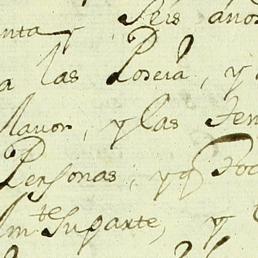 enta y Seis años
a las Poseia, y
Mauor, y las Ten
Personas, y q̃ Po
m.te Suparte, y